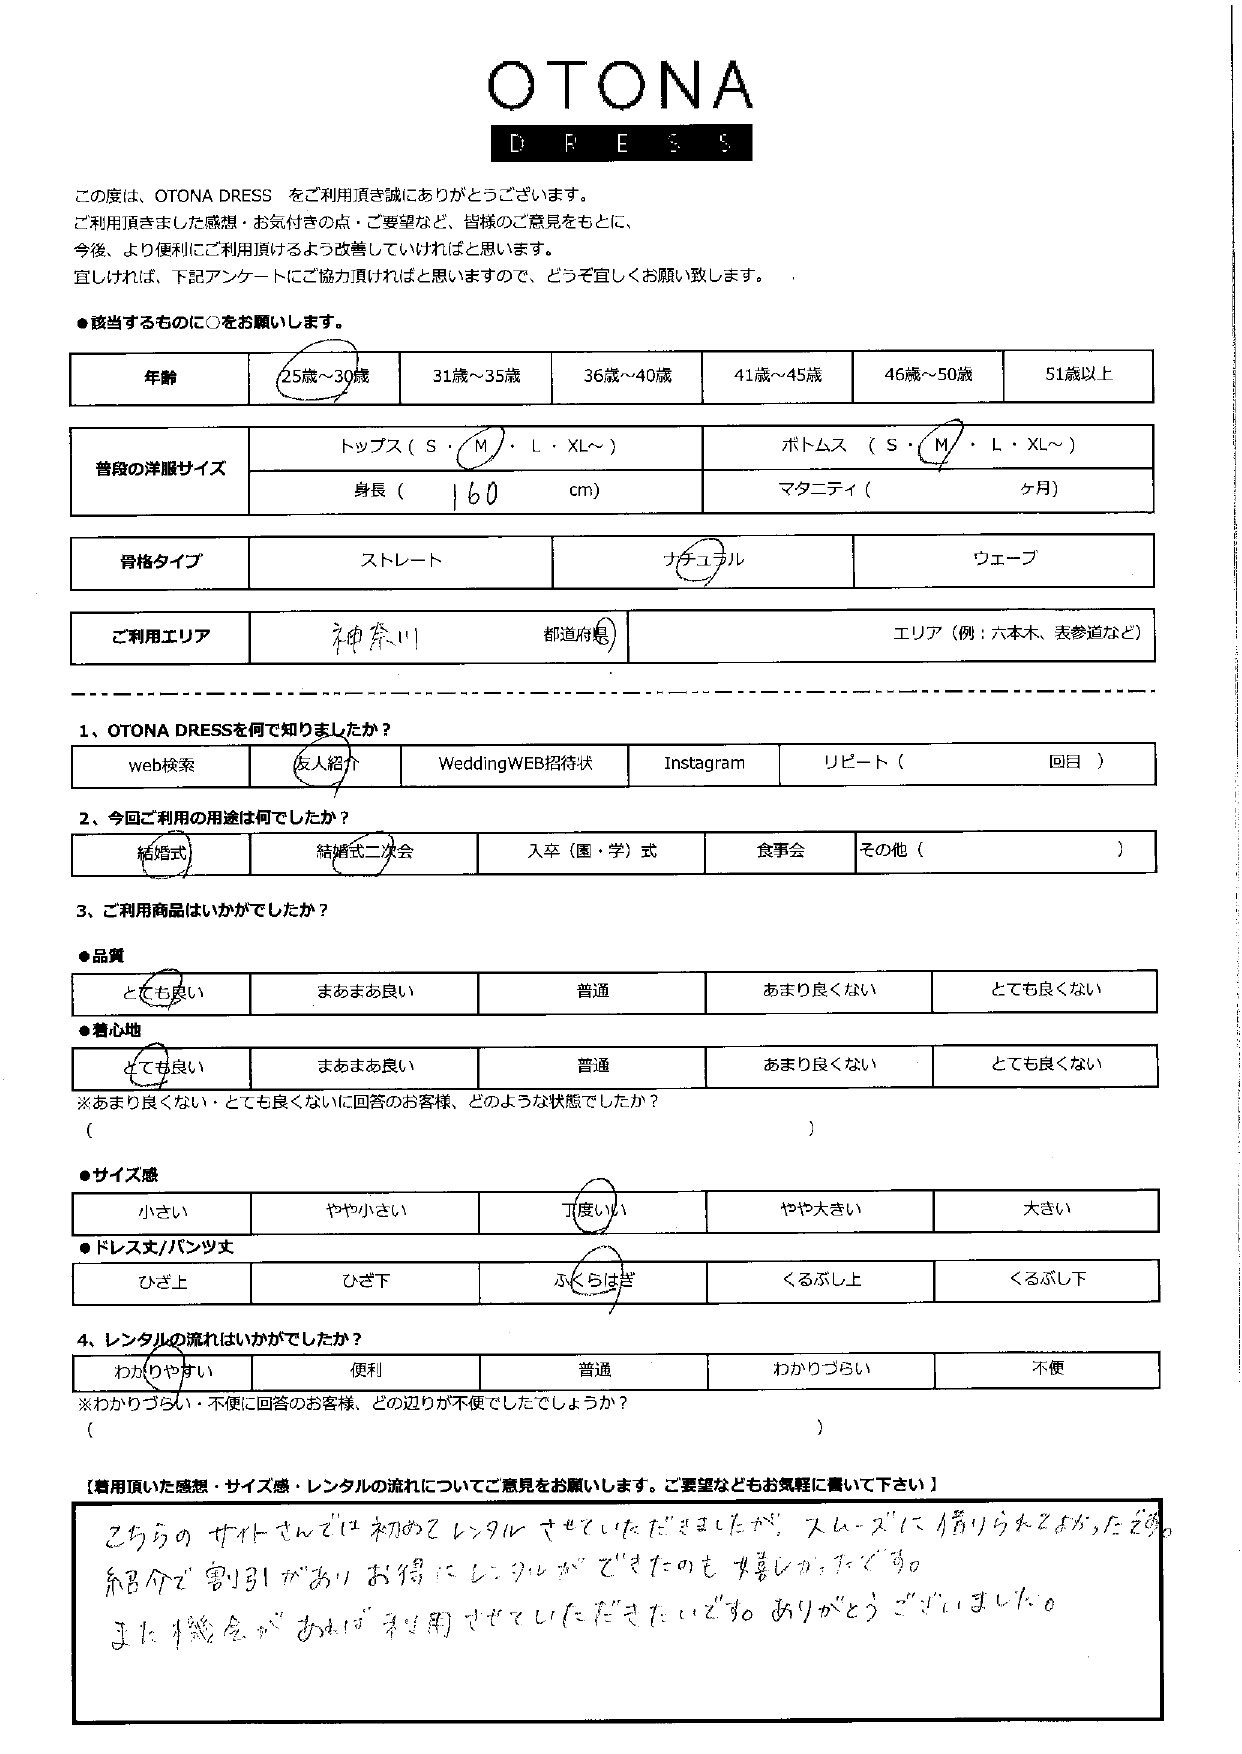 OTONA
DRESS
この度は、OTONA DRESS をご利用頂き誠にありがとうございます。
ご利用頂きました感想・お気付きの点・ご要望など、皆様のご意見をもとに、
今後、より便利にご利用頂けるよう改善していければと思います。
宜しければ、下記アンケートにご協力頂ければと思いますので、どうぞ宜しくお願い致します。
●該当するものに○をお願いします。
年齢 25歳～30歳 31歳～35歳 36歳～40歳 41歳～45歳 46歳～50歳 51歳以上
普段の洋服サイズ トップス ( S ・ M ・ L ・ XL～ ) ボトムス ( S ・ M ・ L ・ XL～ )
身長 ( 160 cm) マタニティ ( ヶ月)
骨格タイプ ストレート ナチュラル ウェーブ
ご利用エリア 神奈川 都道府県 エリア（例：六本木、表参道など）
1、OTONA DRESSを何で知りましたか？
web検索 友人紹介 WeddingWEB招待状 Instagram リピート ( 回目 )
2、今回ご利用の用途は何でしたか？
結婚式 結婚式二次会 入卒（園・学）式 食事会 その他 ( )
3、ご利用商品はいかがでしたか？
●品質
とても良い まあまあ良い 普通 あまり良くない とても良くない
●着心地
とても良い まあまあ良い 普通 あまり良くない とても良くない
※あまり良くない・とても良くないに回答のお客様、どのような状態でしたか？
( )
●サイズ感
小さい やや小さい 丁度いい やや大きい 大きい
●ドレス丈/パンツ丈
ひざ上 ひざ下 ふくらはぎ くるぶし上 くるぶし下
4、レンタルの流れはいかがでしたか？
わかりやすい 便利 普通 わかりづらい 不便
※わかりづらい・不便に回答のお客様、どの辺りが不便でしたでしょうか？
( )
【着用頂いた感想・サイズ感・レンタルの流れについてご意見をお願いします。ご要望などもお気軽に書いて下さい】
こちらのサイトさんでは初めてレンタルさせていただきましたが、スムーズに借りられてよかったです。
紹介で割引がありお得にレンタルができたのも嬉しかったです。
また機会があれば利用させていただきたいです。ありがとうございました。